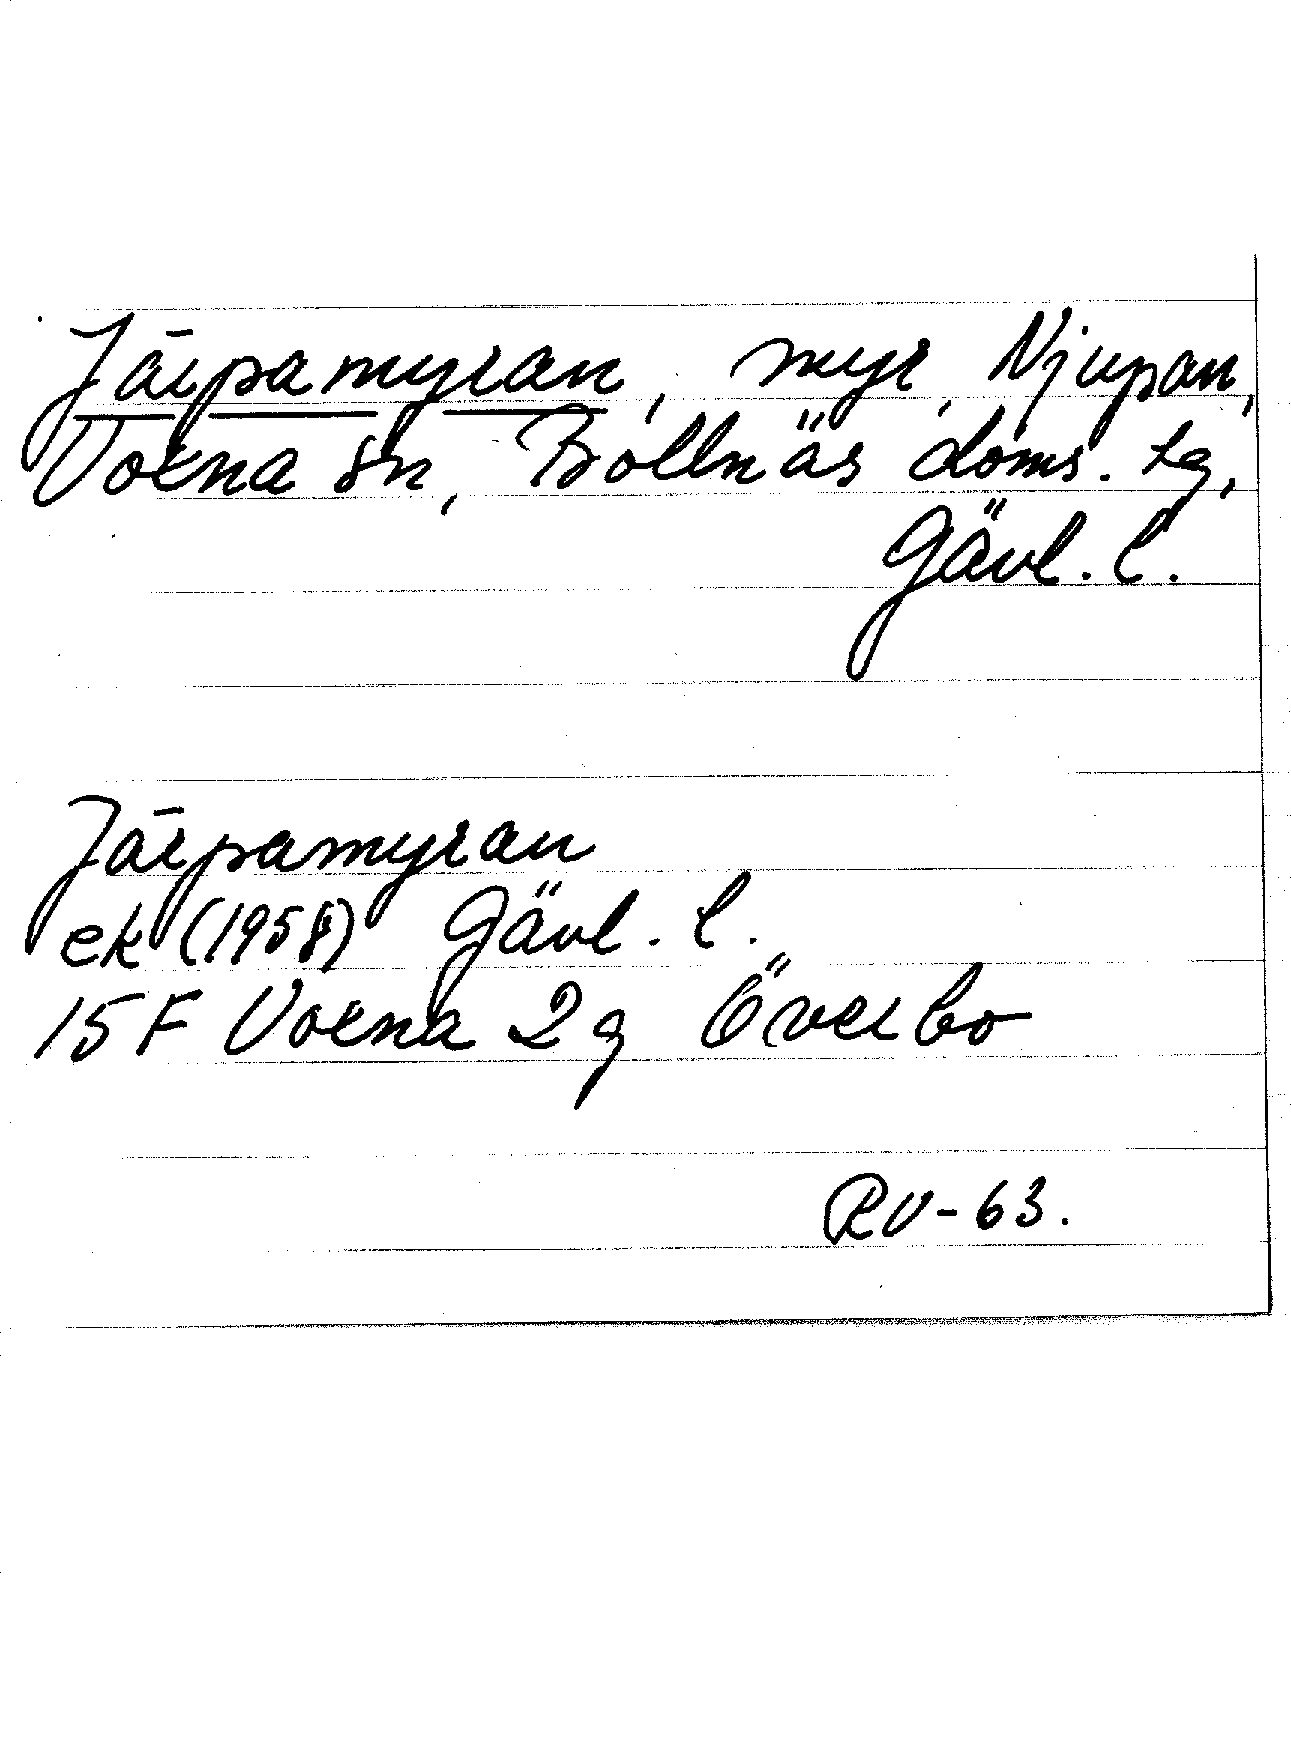 Järpamyran, myr, Njupan,
Voxna sn, Bollnäs doms. tg,
Gävl. l.
Järpamyran
ek (1958) Gävl. l.
15F Voxna 2g Överbo
RV-63.